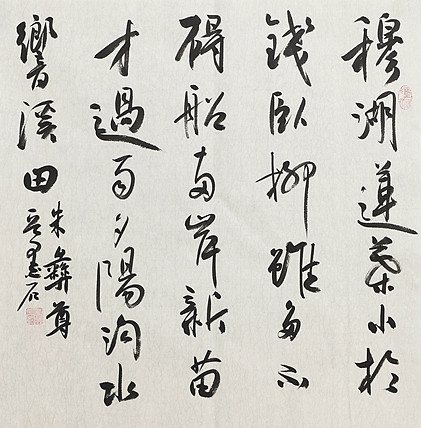 穆湖蓮葉小於
錢臥柳雖多不
礙船兩岸新苗
才過雨夕陽沟水
響溪田
朱彝尊